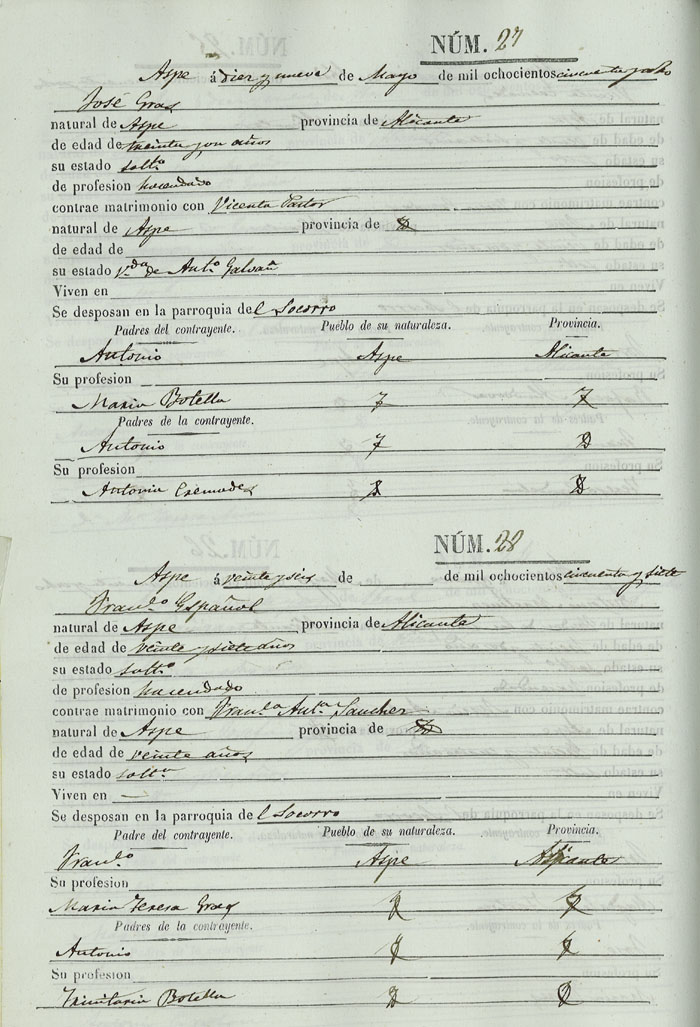 NÚM. 27
Aspe á diez y nueve de Mayo de mil ochocientos cincuenta y ocho
José Gras
natural de Aspe provincia de Alicante
de edad de treinta y un años
su estado solt.º
de profesion hacendado
contrae matrimonio con Vicenta Pastor
natural de Aspe provincia de
de edad de
su estado V.da de Ant.º Galvañ
Viven en
Se desposan en la parroquia del Socorro
Padres del contrayente. Pueblo de su naturaleza. Provincia.
Antonio Aspe Alicante
Su profesion
Maria Botella
Padres de la contrayente.
Antonio
Su profesion
Antonia Cremades
NÚM. 28
Aspe á veinte y seis de de mil ochocientos cincuenta y siete
Fran.co Español
natural de Aspe provincia de Alicante
de edad de veinte y siete años
su estado solt.º
de profesion hacendado
contrae matrimonio con Fran.ca Ant.a Sanchez
natural de Aspe provincia de
de edad de veinte años
su estado solt.a
Viven en —
Se desposan en la parroquia del Socorro
Padre del contrayente. Pueblo de su naturaleza. Provincia.
Fran.co Aspe Alicante
Su profesion
Maria Teresa Gras
Padres de la contrayente.
Antonio
Su profesion
Trinitaria Botella